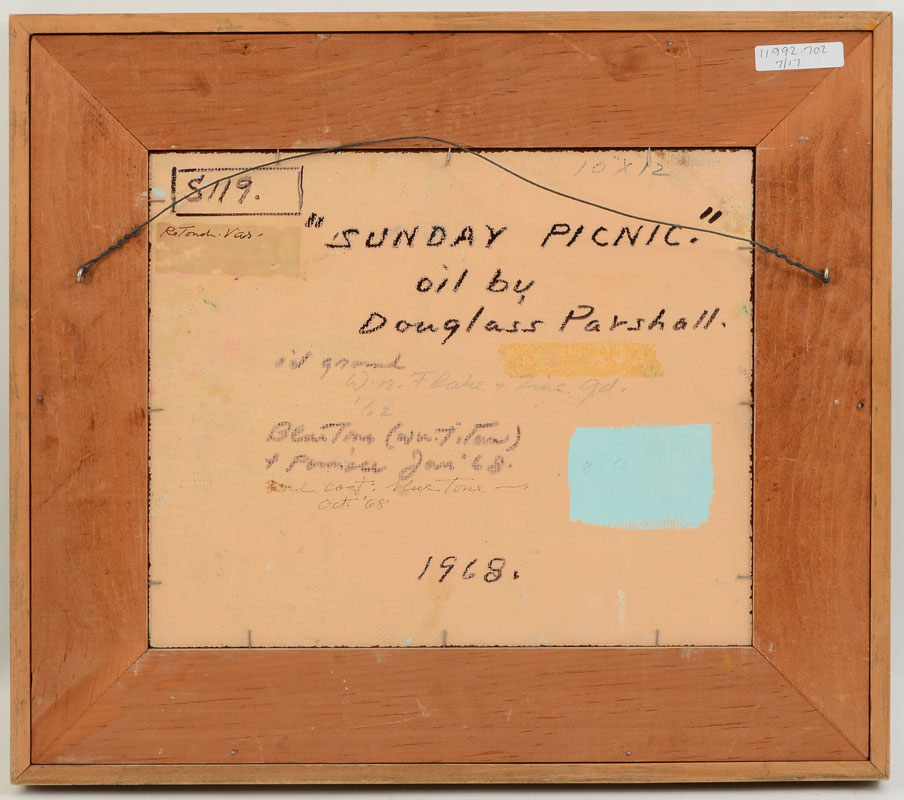 11992.702
7/17
10" X 12
S119.
Retouch. Var.
"SUNDAY PICNIC."
oil by
Douglass Parshall.
oil ground
Wn. Flake + Gd.
'62
Blue Tone (
+ Jan '68.
2nd coat. blue Tone →
Oct. '68
1968.